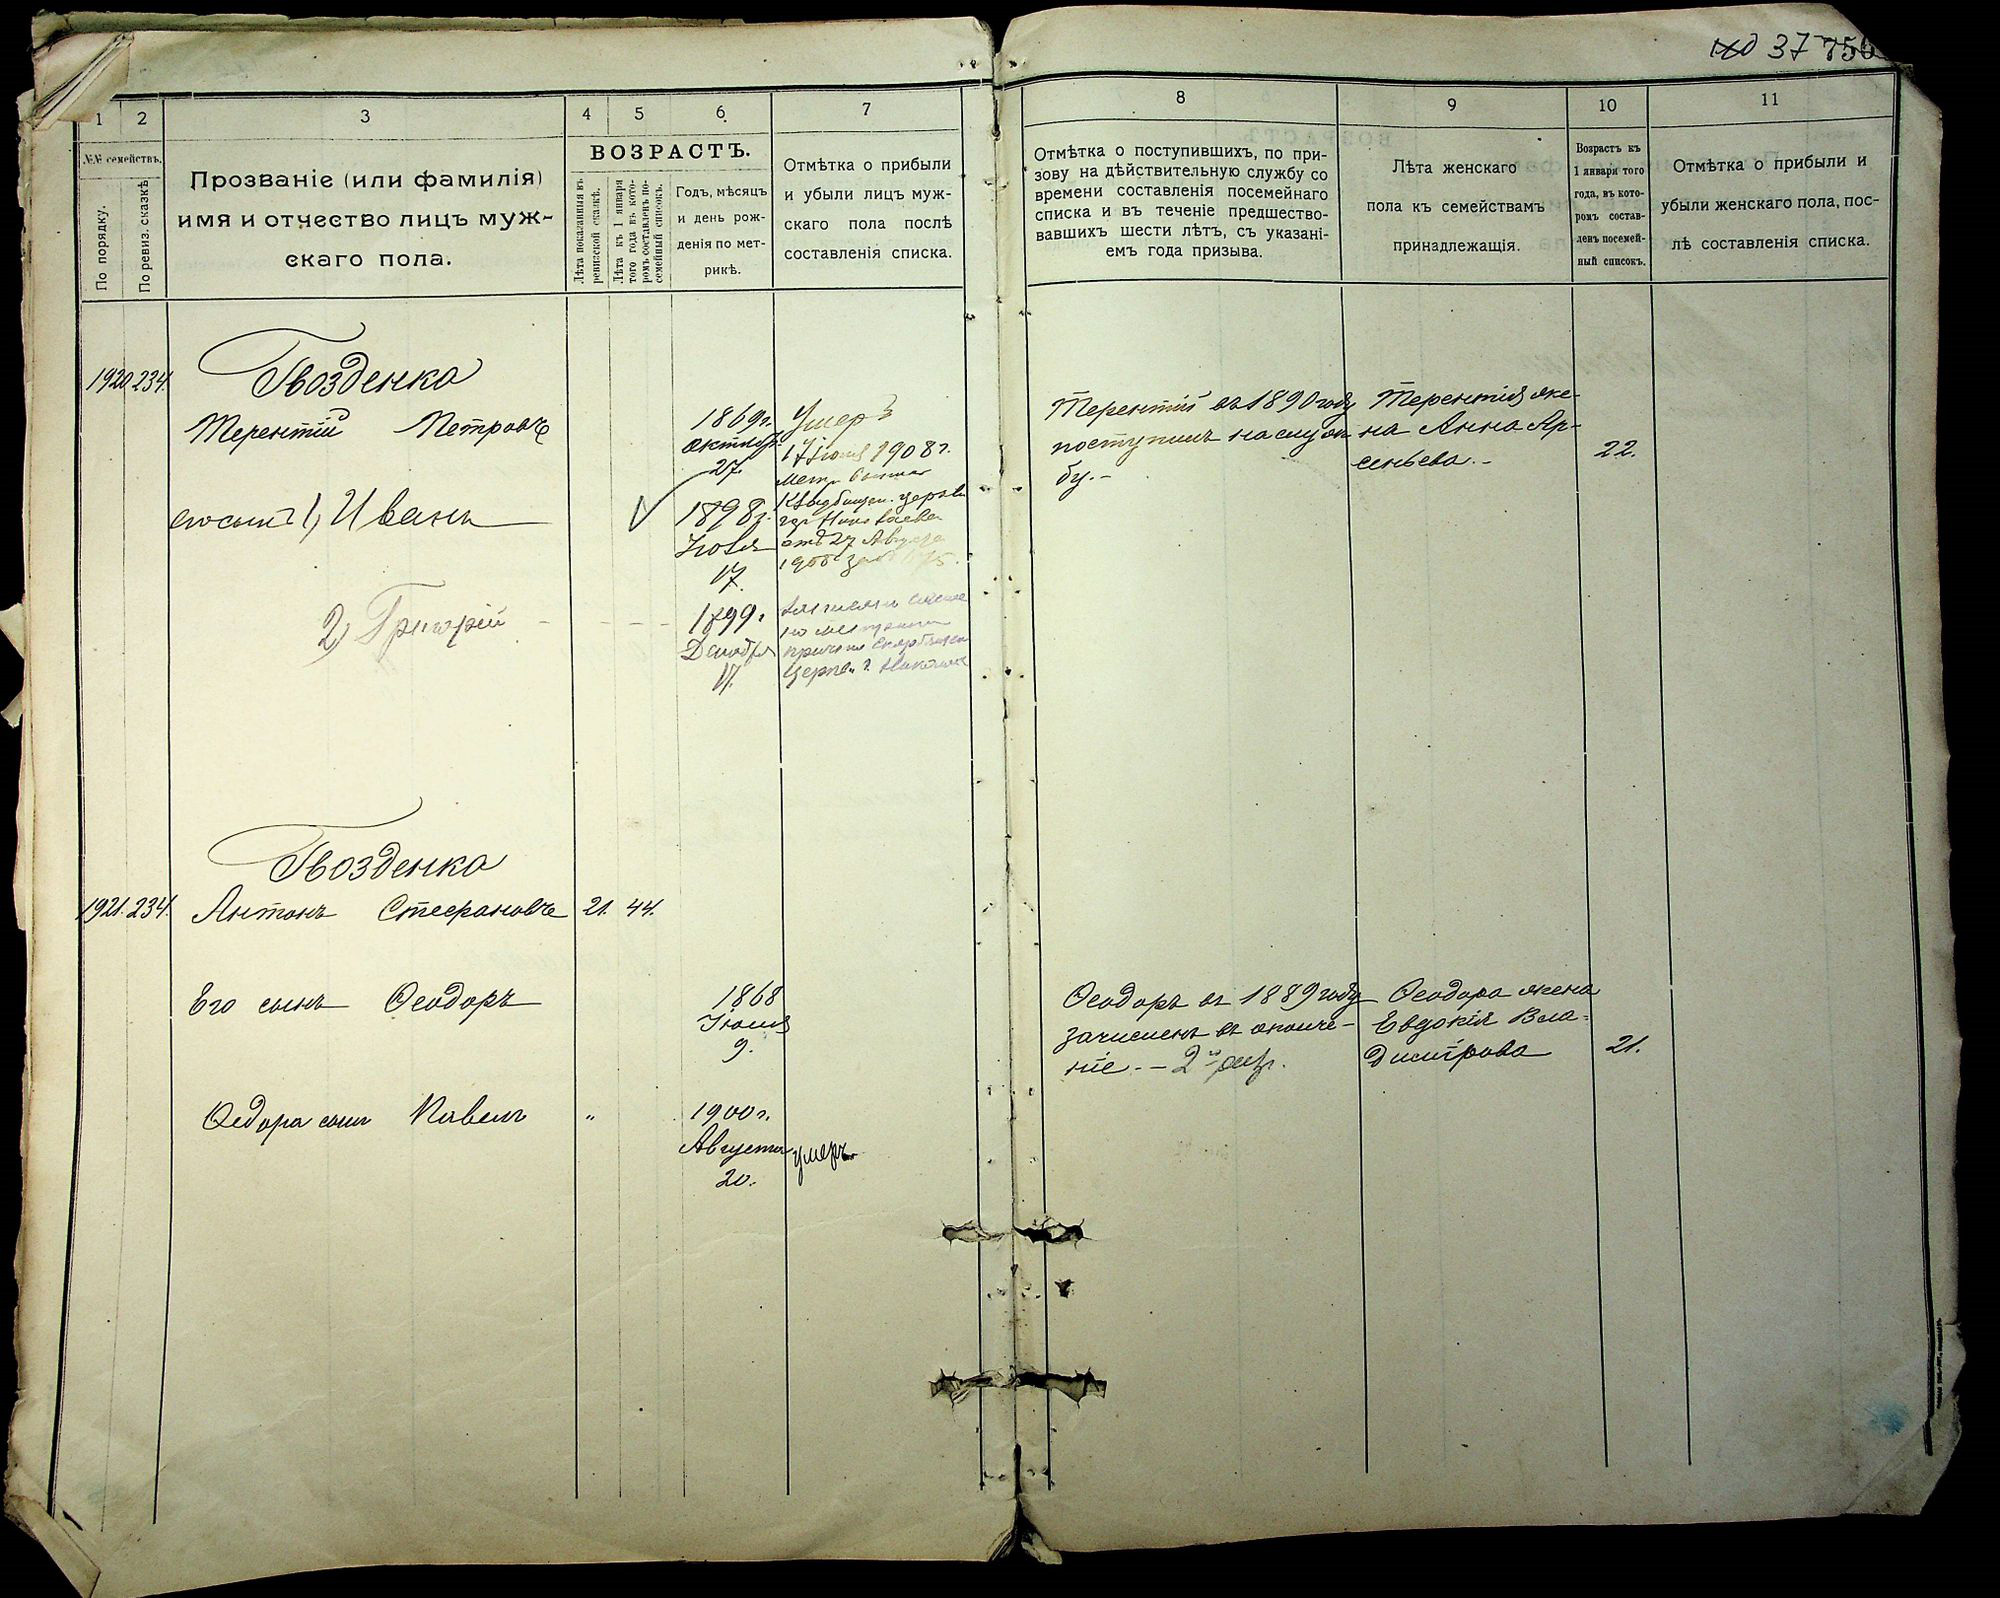 37 750
1
2
3
4
5
6
7
8
9
10
11
№№ семействъ.
По порядку.
По ревиз. сказкѣ
Прозваніе (или фамилія)
имя и отчество лицъ муж-
скаго пола.
ВОЗРАСТЪ.
Лѣта показанныя въ
ревизской сказкѣ.
Лѣта къ 1 января
того года въ кото-
ромъ составленъ по-
семейный списокъ.
Годъ, мѣсяцъ
и день рож-
денія по мет-
рикѣ.
Отмѣтка о прибыли
и убыли лицъ муж-
скаго пола послѣ
составленія списка.
Отмѣтка о поступившихъ, по при-
зову на дѣйствительную службу со
времени составленія посемейнаго
списка и въ теченіе предшество-
вавшихъ шести лѣтъ, съ указані-
емъ года призыва.
Лѣта женскаго
пола къ семействамъ
принадлежащія.
Возрастъ къ
1 января того
года, въ кото-
ромъ состав-
ленъ посемей-
ный списокъ.
Отмѣтка о прибыли и
убыли женскаго пола, пос-
лѣ составленія списка.
1920. 234.
Гвозденко
Терентій Петровъ
1869 г.
октября
27.
Умеръ
17 іюня 1908 г.
Терентій въ 1890 году
поступилъ на служ
бу.-
Терентія же-
на Анна Ар-
сеньева.-
22.
его сынъ 1, Иванъ
1898 г.
Іюля
17.
церкви
отъ 27 Августа
2) Григорій
1899.
Декабря
17.
Гвозденко
1921. 234.
Антонъ Стефановъ 21. 44.
Его сынъ Ѳеодоръ
1868
Іюня
9.
Ѳеодоръ въ 1889 году
зачисленъ въ ополче-
ніе.- 2 разр.
Ѳеодора жена
Евдокія Вла-
димірова
21.
Ѳедора сынъ Павелъ "
1900 г.
Августа
20.
умеръ